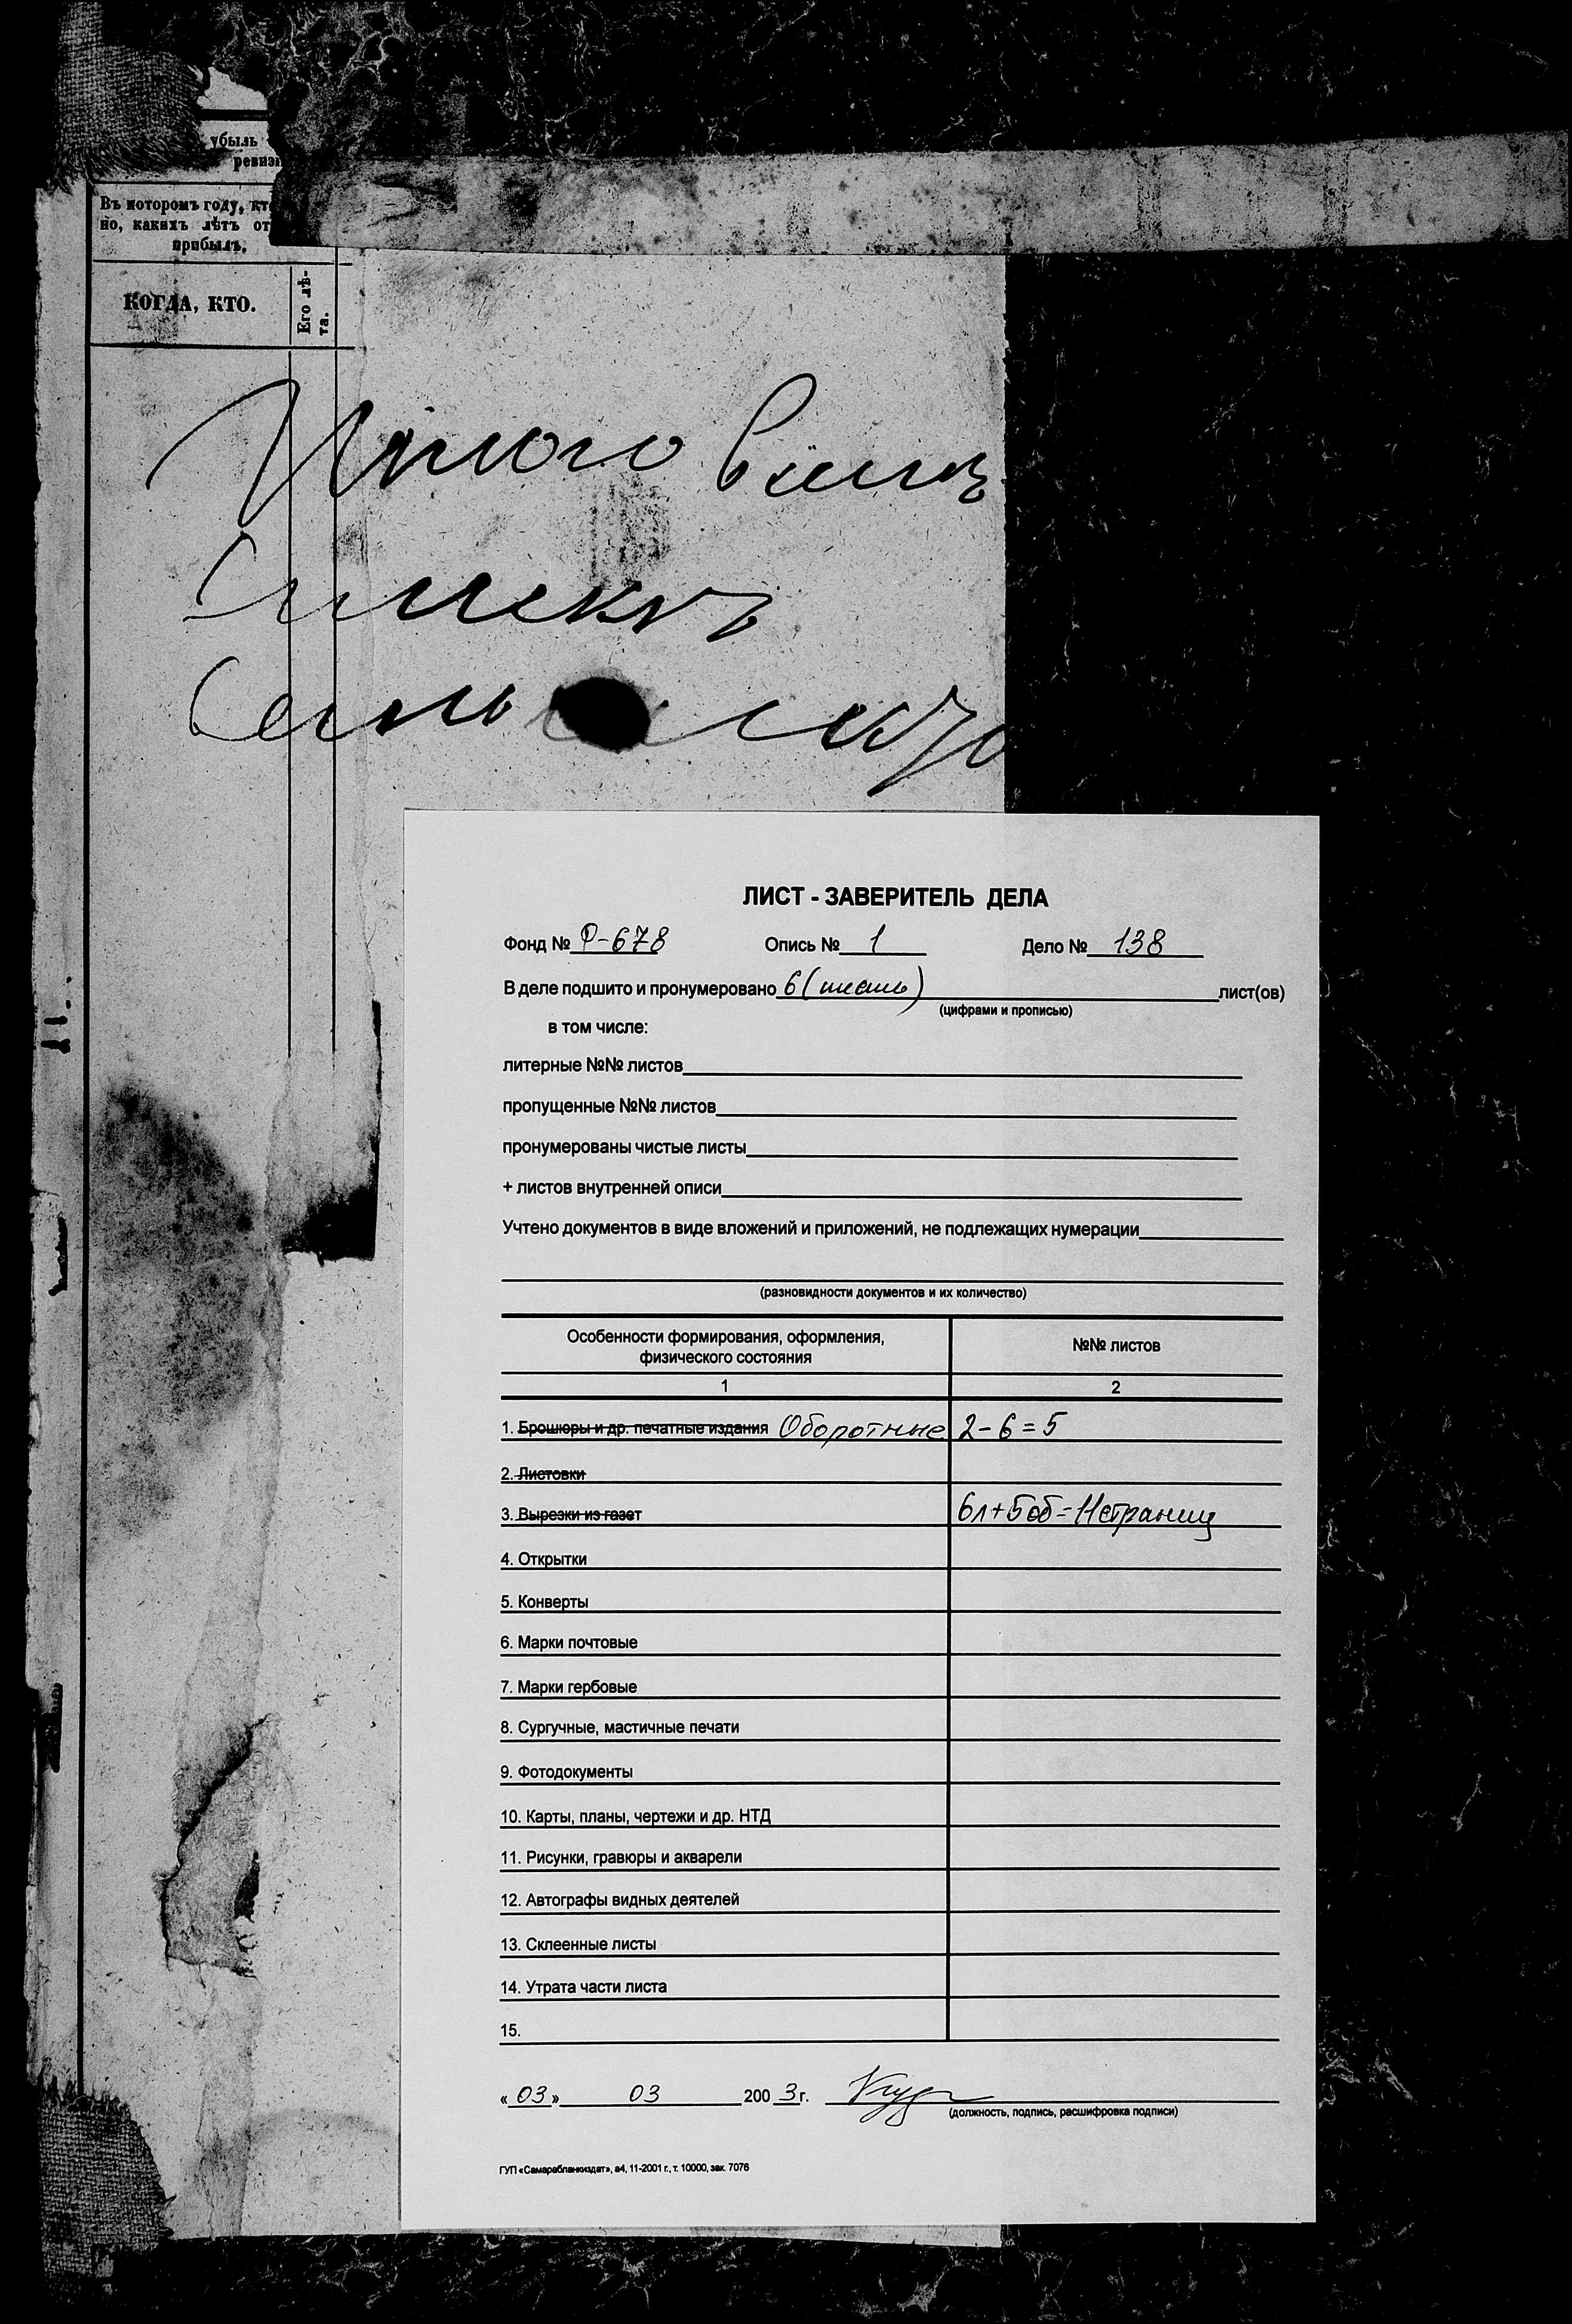 убыль
ревиз
Въ которомъ году, кто
но, какихъ лѣтъ от
прибылъ.
КОГДА, КТО.
Его лѣ-
та.
Итого
ЛИСТ - ЗАВЕРИТЕЛЬ ДЕЛА
Фонд № Р-678 Опись № 1 Дело № 138
В деле подшито и пронумеровано 6 (шесть) лист(ов)
(цифрами и прописью)
в том числе:
литерные №№ листов
пропущенные №№ листов
пронумерованы чистые листы
+ листов внутренней описи
Учтено документов в виде вложений и приложений, не подлежащих нумерации
(разновидности документов и их количество)
Особенности формирования, оформления,
физического состояния
№№ листов
1 2
1. Брошюры и др. печатные издания Оборотные 2-6=5
2. Листовки
3. Вырезки из газет 6л+5об=11страниц
4. Открытки
5. Конверты
6. Марки почтовые
7. Марки гербовые
8. Сургучные, мастичные печати
9. Фотодокументы
10. Карты, планы, чертежи и др. НТД
11. Рисунки, гравюры и акварели
12. Автографы видных деятелей
13. Склеенные листы
14. Утрата части листа
15.
«03» 03 2003г.
(должность, подпись, расшифровка подписи)
ГУП «Самарабланкиздат», а4, 11-2001 г., т. 10000, зак. 7076